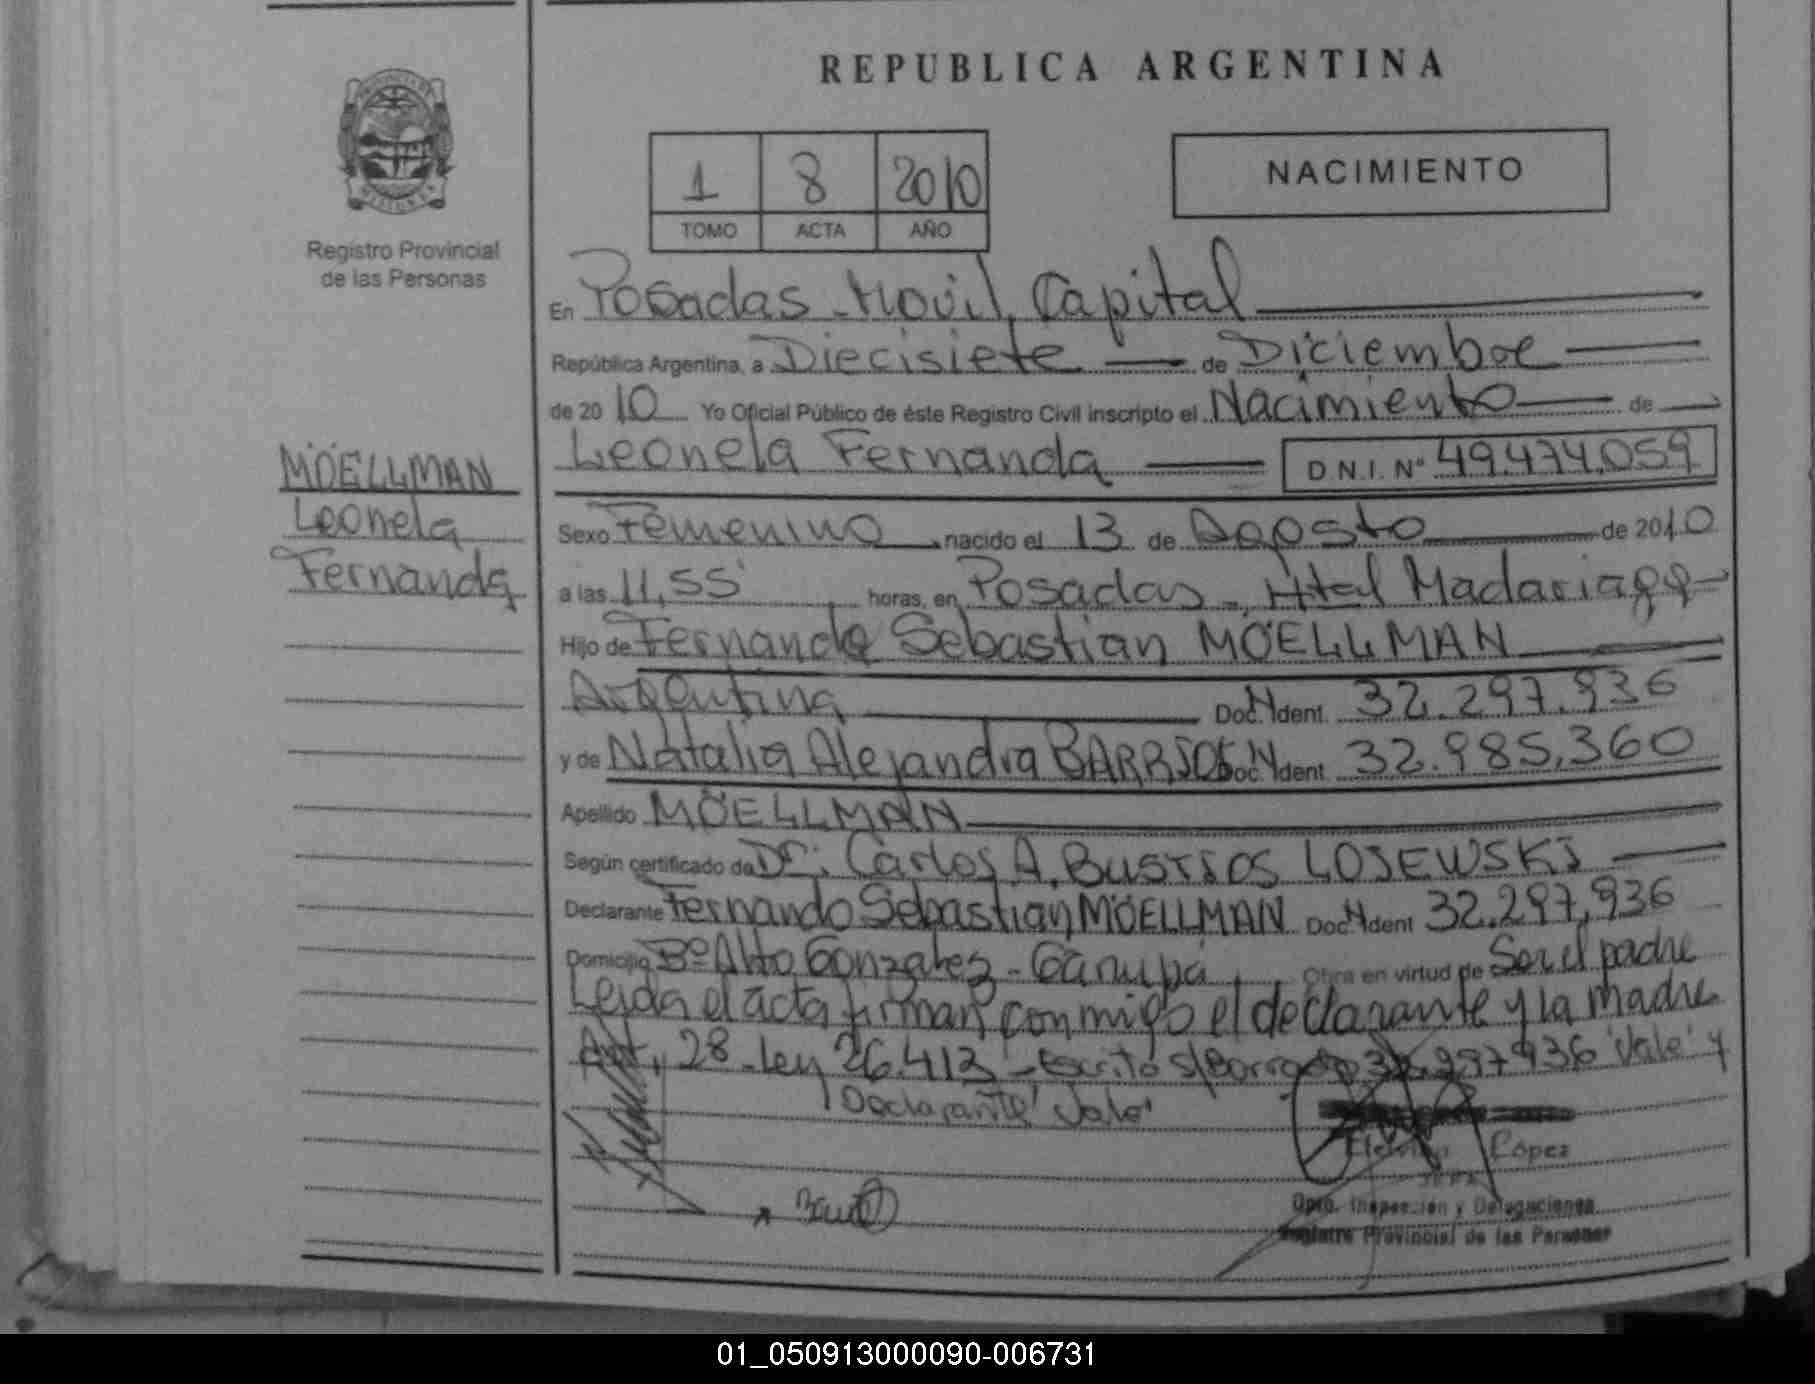 REPUBLICA ARGENTINA
1 8 2010
TOMO ACTA AÑO
NACIMIENTO
Registro Provincial
de las Personas
En Posadas - Movil, Capital
República Argentina, a Diecisiete de Diciembre
de 2010 Yo Oficial Público de éste Registro Civil inscripto el Nacimiento de
Leonela Fernanda D.N.I. Nº 49.474.059
MÖELLMAN
Leonela
Fernanda
Sexo Femenino nacido el 13 de Agosto de 2010
a las 11,55' horas, en Posadas - Htal Madariaga
Hijo de Fernando Sebastian MÖELLMAN
Argentina Doc. N Ident. 32.297.936
y de Natalia Alejandra BARRIOS Doc. N Ident 32.985.360
Apellido MÖELLMAN
Según certificado de Dr. Carlos A. BUSTIOS LOSEWSKI
Declarante Fernando Sebastian MÖELLMAN Doc. N Ident 32.297.936
Domicilio Bº Alto Gonzalez - Garupá Obra en virtud de Ser el padre
Leida el acta firman conmigo el declarante y la madre
Art. 28 - Ley 26.413 - Escrito s/Borrado 32.297936 'Vale' y
'Declarante' Vale'
López
JEFA
Dpto. Inspección y Delegaciones
Registro Provincial de las Personas
01_050913000090-006731